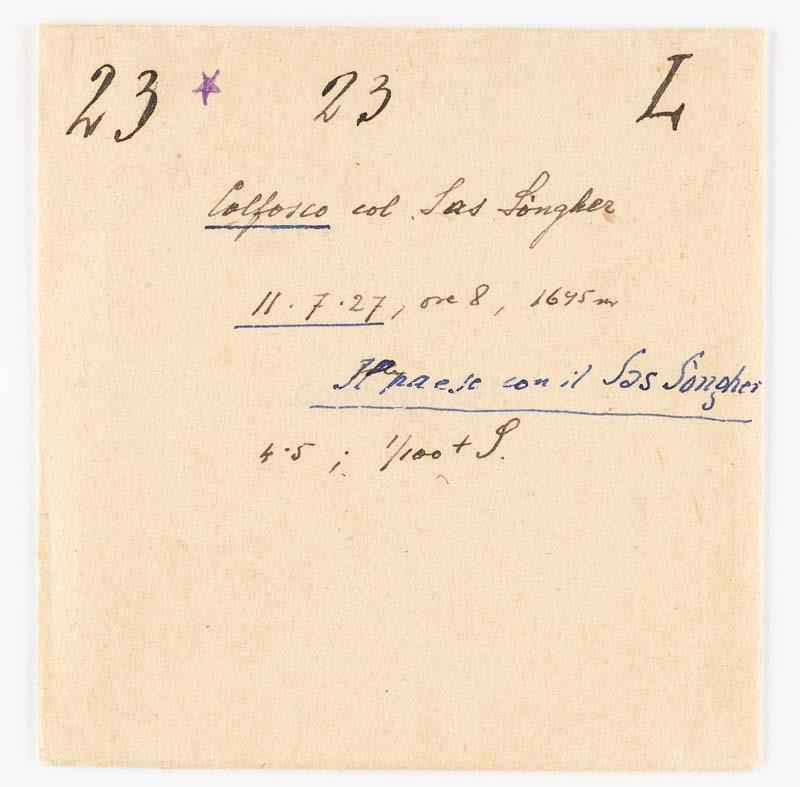 23 * 23 L
Colfosco col Sas Sóngher
11.7.27, ore 8, 1645 m
Il paese con il Sas Sóngher
4.5 ; 1/100 + S.